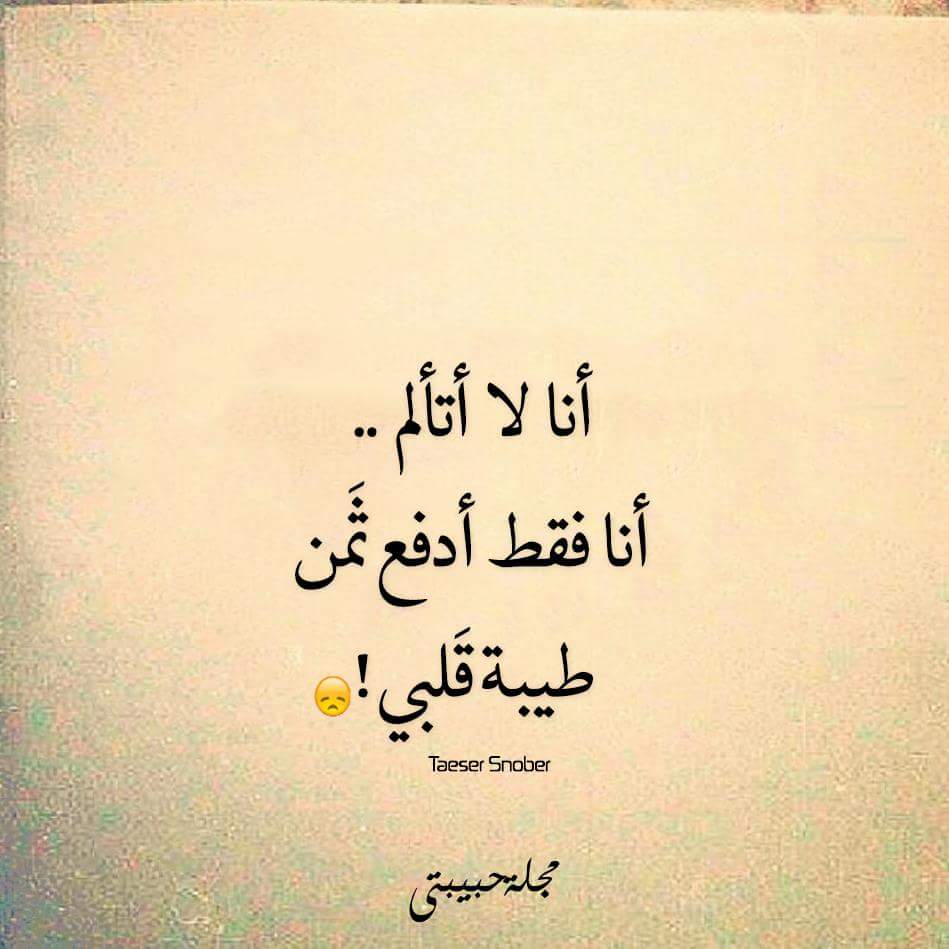 أنا لا أتألم ..
أنا فقط أدفع ثَمن
طيبة قَلبي !😞
Taeser Snober
مجلة حبيبتي